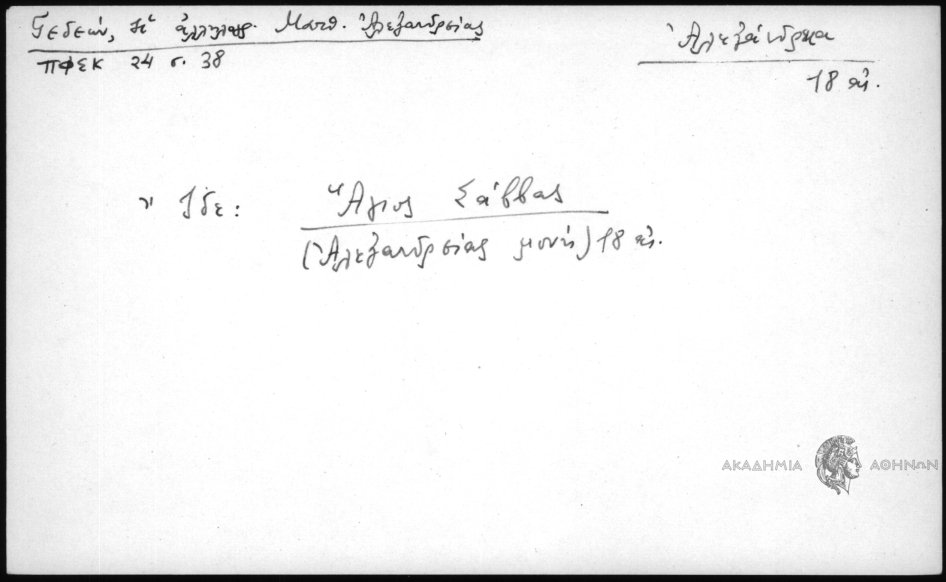 Γεδεών, Ἐκ ἀλληλογρ. Ματθ. Ἀλεξανδρείας
ΠΦΣΚ 24 σ. 38
Ἀλεξάνδρεια
18 αἰ.
Ἴδε: Ἅγιος Σάββας
(Ἀλεξανδρείας μονή) 18 αἰ.
ΑΚΑΔΗΜΙΑ ΑΘΗΝΩΝ